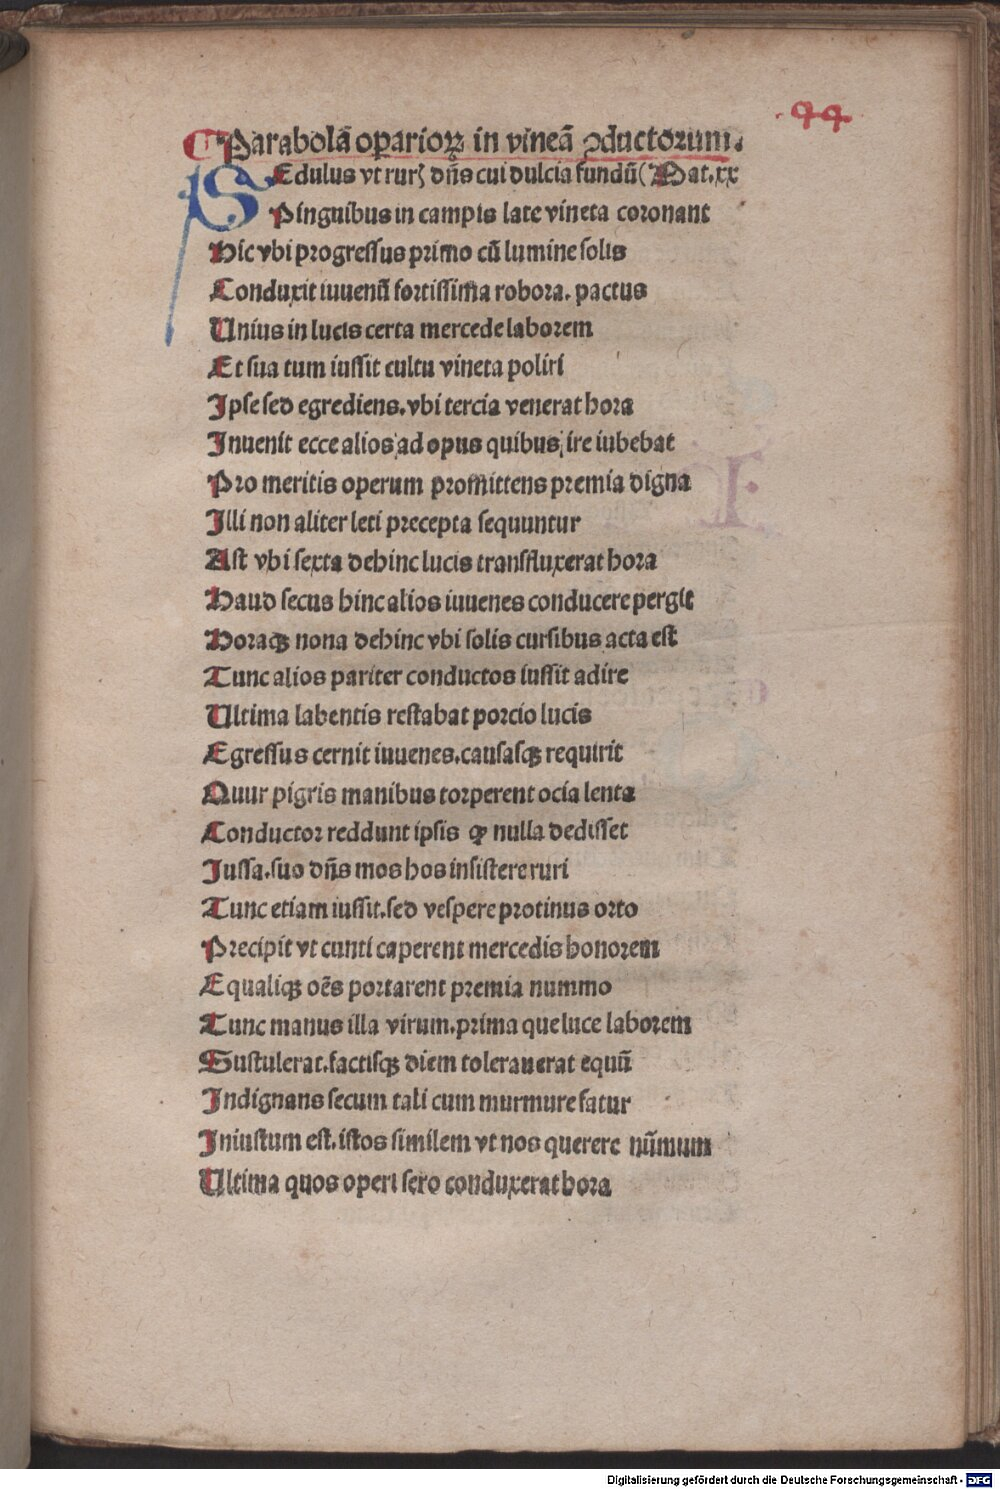 44
Parabolā oꝑarioꝝ in vineā ꝯductorum.
SEdulus vt rurꝭ dn̄s cui dulcia fundū (Mat.xx
Pinguibus in campis late vineta coronant
Hic vbi progressus primo cū lumine solis
Conduxit iuuenū fortissima robora. pactus
Unius in lucis certa mercede laborem
Et sua tum iussit cultu vineta poliri
Ipse sed egrediens. vbi tercia venerat hora
Inuenit ecce alios ad opus quibus ire iubebat
Pro meritis operum promittens premia digna
Illi non aliter leti precepta sequuntur
Ast vbi sexta dehinc lucis transfluxerat hora
Haud secus hinc alios iuuenes conducere pergit
Horaqꝫ nona dehinc vbi solis cursibus acta est
Tunc alios pariter conductos iussit adire
Ultima labentis restabat porcio lucis
Egressus cernit iuuenes. causasqꝫ requirit
Quur pigris manibus torperent ocia lenta
Conductor reddunt ipsis ꝙ nulla dedisset
Iussa. suo dn̄s mos hos insistere ruri
Tunc etiam iussit. sed vespere protinus orto
Precipit vt cunti caperent mercedis honorem
Equaliqꝫ oēs portarent premia nummo
Tunc manus illa virum. prima que luce laborem
Sustulerat. factisqꝫ diem tolerauerat equū
Indignans secum tali cum murmure fatur
Iniustum est. istos similem vt nos querere nūmum
Ultima quos operi sero conduxerat hora
Digitalisierung gefördert durch die Deutsche Forschungsgemeinschaft - DFG